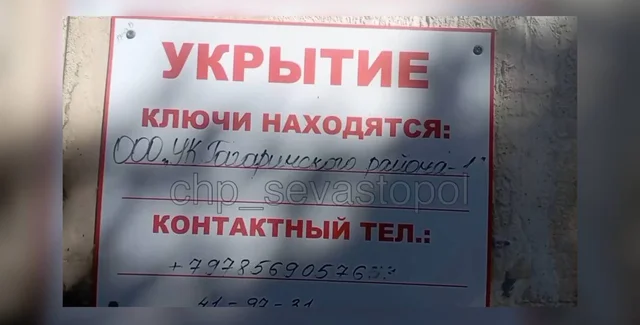 УКРЫТИЕ
КЛЮЧИ НАХОДЯТСЯ:
ООО "УК Гагаринского района-1"
chp_sevastopol
КОНТАКТНЫЙ ТЕЛ.:
41-97-31